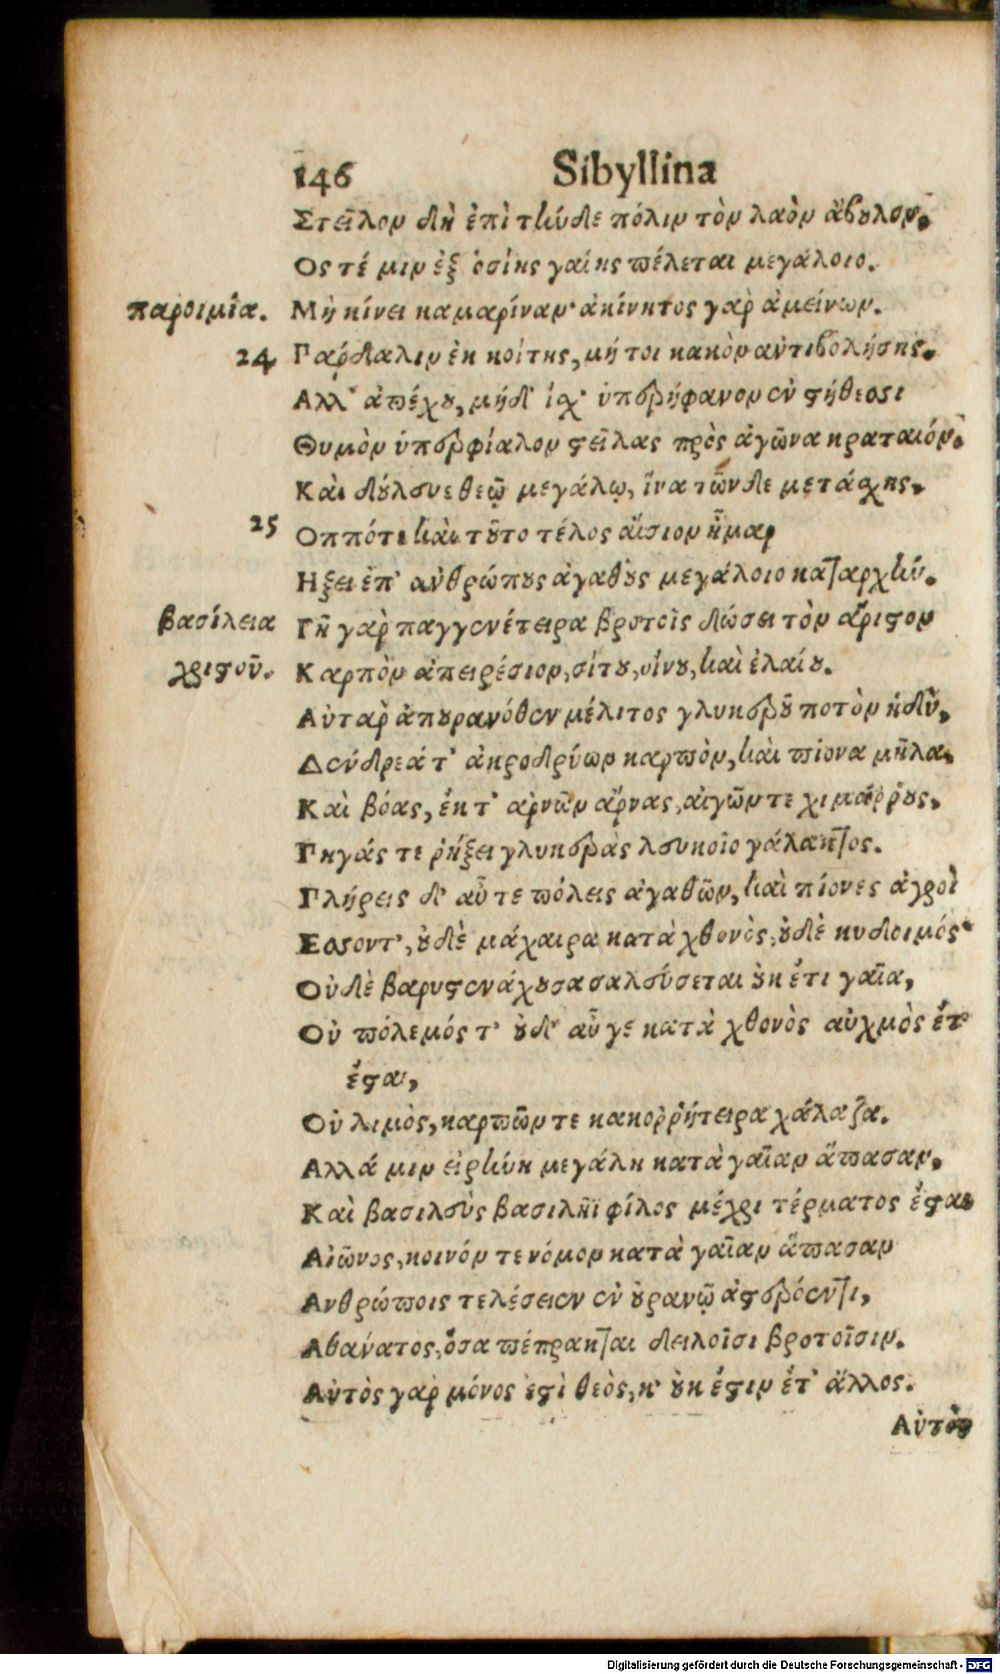 146 Sibyllina
Στεῖλον δὴ ἐπὶ τὴνδε πόλιν τὸν λαὸν ἄβουλον,
Ος τέ μιν ἐξ ὁσίης γαίης πέλεται μεγάλοιο.
παροιμία. Μὴ κίνει καμαρίναν· ἀκίνητος γὰρ ἀμείνων.
24 Παρδαλιν ἐκ κοίτης, μή τοι κακὸν ἀντιβολήσῃς.
Αλλ᾽ ἀπέχου, μηδ᾽ ἰχ᾽ ὑπερήφανον ἐν στήθεσσι
Θυμὸν ὑπερφίαλον στεῖλας πρὸς ἀγῶνα κραταιόν.
Καὶ δούλευε θεῷ μεγάλῳ, ἵνα τῶνδε μετάσχης.
25 Οππότε καὶ τοῦτο τέλος αἴσιον ἦμαρ
Ηξει ἐπ᾽ ἀνθρώπους ἀγαθοὺς μεγάλοιο καταρχήν.
βασίλεια Γῆ γὰρ παγγενέτειρα βροτοῖς δώσει τὸν ἄριστον
χριστοῦ. Καρπὸν ἀπειρέσιον, σίτου, οἴνου, καὶ ἐλαίου.
Αὐτὰρ ἀπουρανόθεν μέλιτος γλυκεροῦ ποτὸν ἡδὺν,
Δένδρεά τ᾽ ἀκροδρύων καρπὸν, καὶ πίονα μῆλα,
Καὶ βόας, ἔκ τ᾽ ἀρνῶν ἄρνας, αἰγῶν τε χιμάρρους,
Πηγάς τε ῥήξει γλυκερὰς λευκοῖο γάλακτος.
Πλήρεις δ᾽ αὖτε πόλεις ἀγαθῶν, καὶ πίονες ἀγροὶ
Εσσοντ᾽, οὐδὲ μάχαιρα κατὰ χθονὸς, οὐδὲ κυδοιμός·
Οὐδὲ βαρυστενάχουσα σαλεύσεται οὐκ ἔτι γαῖα,
Οὐ πόλεμός τ᾽ οὐδ᾽ αὖ γε κατὰ χθονὸς αὐχμὸς ἔτ᾽
ἔσται,
Οὐ λιμὸς, καρπῶν τε κακορρήτειρα χάλαζα.
Αλλά μιν εἰρήνη μεγάλη κατὰ γαῖαν ἅπασαν,
Καὶ βασιλεὺς βασιλῆϊ φίλος μέχρι τέρματος ἔσται
Αἰῶνος, κοινόν τε νόμον κατὰ γαῖαν ἅπασαν
Ανθρώποις τελέσειεν ἐν οὐρανῷ ἀστερόεντι,
Αθανατος, ὅσα πέπρακται δειλοῖσι βροτοῖσιν.
Αὐτὸς γὰρ μόνος ἐστὶ θεὸς, κ᾽ οὐκ ἔστιν ἔτ᾽ ἄλλος.
Αὐτὸς
Digitalisierung gefördert durch die Deutsche Forschungsgemeinschaft - DFG